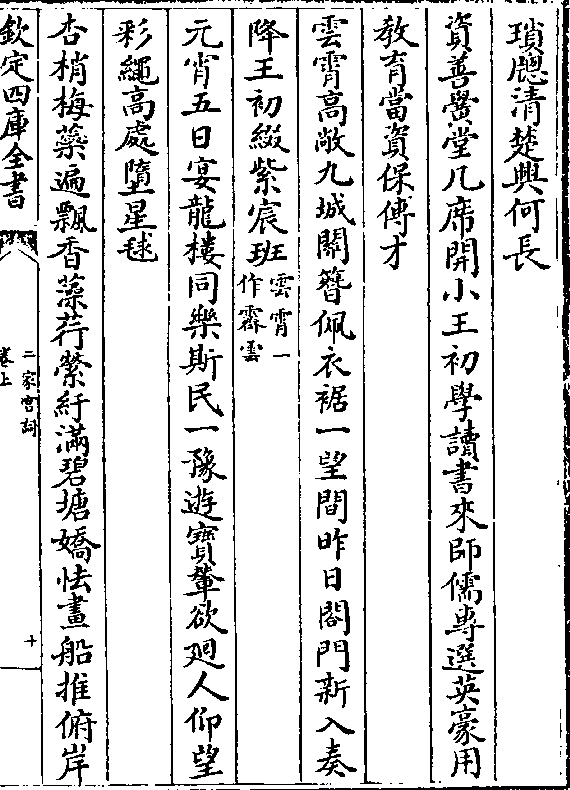 瑣牕清楚興何長
資善黌堂几席開小王初學讀書來師儒專選英豪用
教育當資保傅才
雲霄高敞九城關簪佩衣裾一望間昨日閤門新入奏
降王初綴紫宸班雲霄一作霽雲
元宵五日宴龍樓同樂斯民一豫遊寳輦欲廻人仰望
彩繩高處墮星毬
杏梢梅蘂遍飄香藻荇縈紆滿碧塘嬌怯畫船推俯岸
欽定四庫全書
二家宮詞
卷上
十